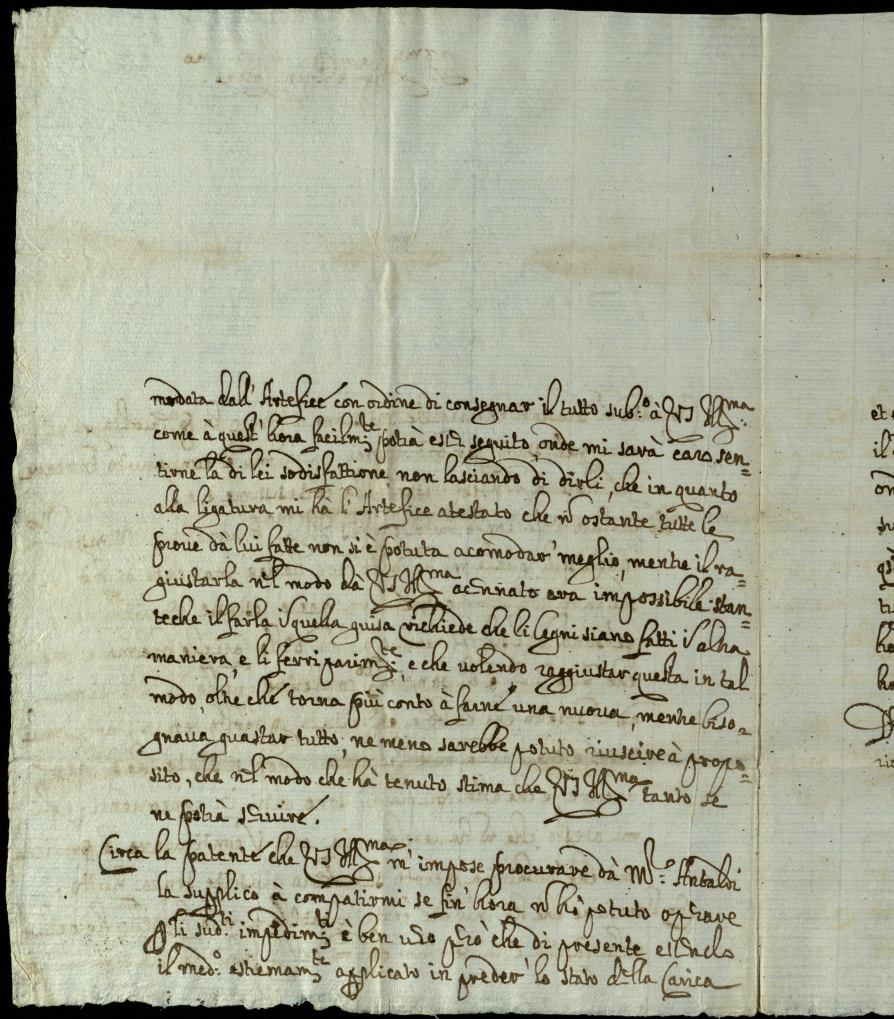 modata dall' Artefice con ordine di consegnar il tutto sub.º à VS Ill.ma
come à quest' hora facilm.te potrà esser seguito, onde mi sarà caro sen=
tirne la di lei sodisfattione non lasciando di dirli, che in quanto
alla ligatura mi hà l'Artefice atestato che nõ ostante tutte le
proue dà lui fatte non si è potuta acomodar' meglio, mentre il ra=
giustarla nel modo dà VS Ill.ma acennato era impossibile stan=
teche il farla in quella guisa richiede che li legni siano fatti in altra
maniera, e li ferri parim.te, e che uolendo raggiustar questa in tal
modo, oltre che torna più conto à farne una nuoua, mentre biso=
gnaua guastar tutto, ne meno sarebbe potuto riuscire à propo=
sito, che nel modo che hà tenuto stima che VS Ill.ma tanto se
ne potrà seruire.
Circa la patente che VS Ill.ma m' impose procurare dà M.r Antaldi
la supplico à compatirmi se fin' hora nõ hò potuto operare
p li sud.ti impedim.ti è ben uero però che di presente essendo
il med.º estremam.te applicato in prender' lo stato della Carica